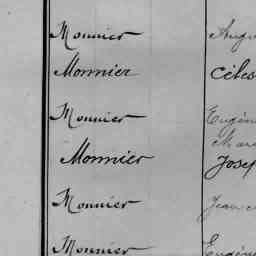 Monnier
Monnier Céles
Monnier Eugén
Monnier Josep
Monnier Jean
Monnier Eugén